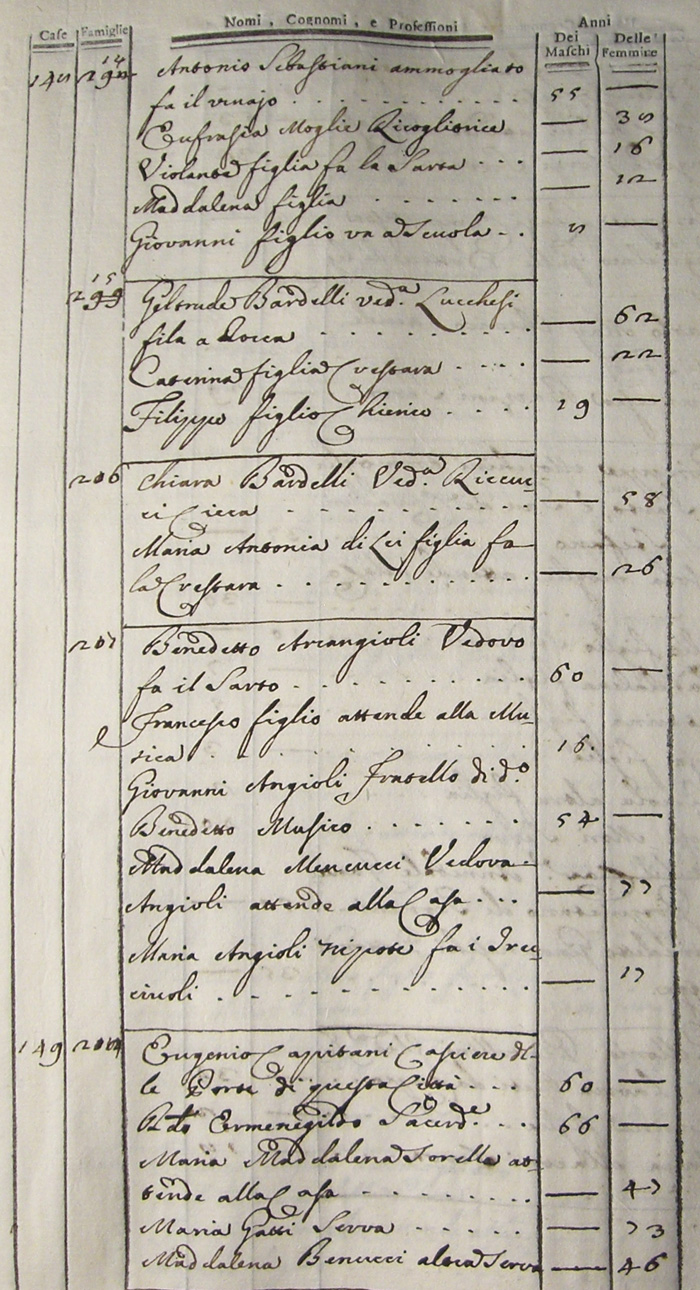 Case Famiglie Nomi, Cognomi, e Professioni Anni
Dei Maschi Delle Femmine
14
Antonio Sebastiani ammogliato
fa il vinajo . . . . . . . . . 55 —
Eufrasia Moglie Ricoglitrice — 35
Violante figlia fa la Sarta . . . — 16
Maddalena figlia . . . . . . . — 12
Giovanni figlio va a Scuola . . 5 —
15
299 Geltrude Bardelli ved.a Lucchesi
fila a Rocca . . . . . . . . . — 62
Caterina figlia Crestara . . . . — 22
Filippo figlio Chierico . . . . 19 —
206 Chiara Bardelli Ved.a Riccuc-
ci Cieca . . . . . . . . . . — 58
Maria Antonia di Lei figlia fa
la Crestara . . . . . . . . . — 26
207 Benedetto Arcangioli Vedovo
fa il Sarto . . . . . . . . . 60 —
Francesco figlio attende alla Mu-
sica . . . . . . . . . . 16.
Giovanni Angioli Fratello di d.o
Benedetto Musico . . . . . . . 54 —
Maddalena Mencucci Vedova
Angioli attende alla Casa . . . — 77
Maria Angioli Nipote fa i
— 17
149 Eugenio Capitani Casiere del-
le Porte di questa Città . . . 60 —
Ermenegildo Sacerd.e . . . 66 —
Maria Maddalena Sorella at-
tende alla Casa . . . . . . . — 47
Maria Gatti Serva . . . . . . — 73
Maddalena Benucci altra Serva — 46